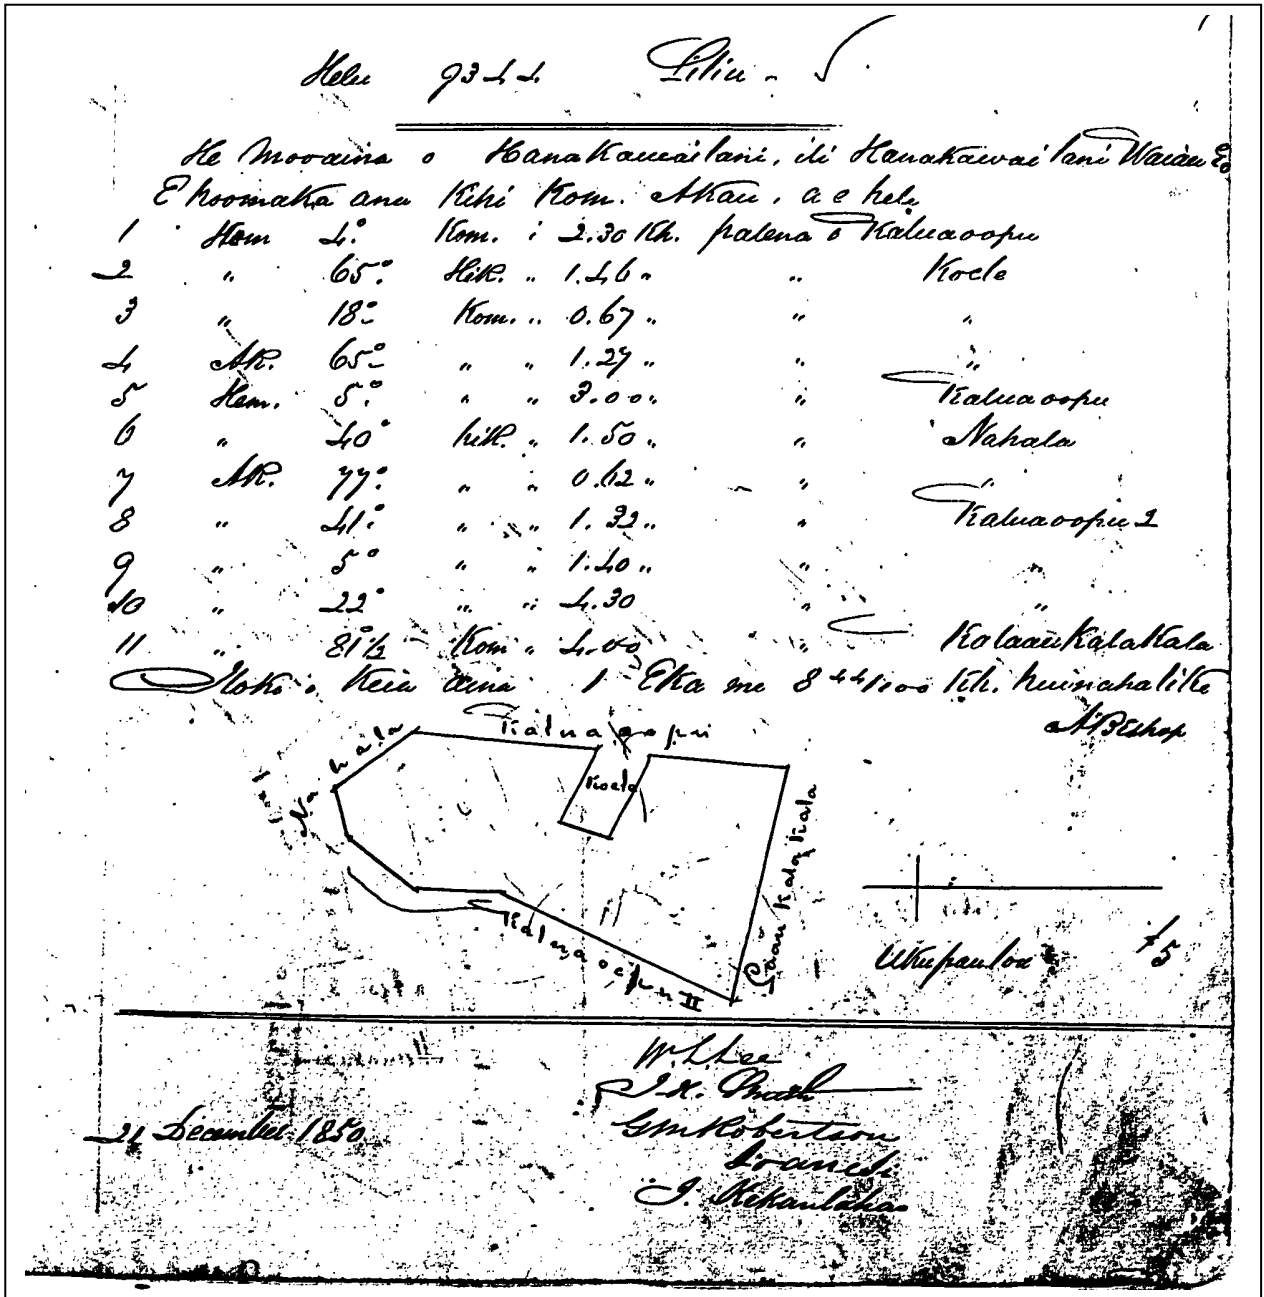 Helu 9344 Liliu -
He Mooaina o Hanakawailani, ili Hanakawailani Waiau Eo
E hoomaka ana Kihi Kom. Akau, a e hele
1 Hem 4° Kom. i 2.30 Kh. palena o Kaluaoopu
2 " 65° Hik. " 1.46 " " Koele
3 " 18° Kom. " 0.67 " " "
4 Ak. 65° " " 1.27 " " "
5 Hem. 5° " " 3.00 " " Kaluaoopu
6 " 40° hik. " 1.50 " " Nahala
7 Ak. 77° " " 0.62 " " "
8 " 41° " " 1.32 " " Kaluaoopu 2
9 " 5° " " 1.40 " " "
10 " 22° " " 4.30 " "
11 " 81°½ Kom " 4.00 " KalaauKalaKala
Iloko o Keia aina 1 Eka me 8 44/100 Kh. huinahalike
A Bishop
Kaluaoopu
Nahala
Koele
Laau Kala Kala
Kaluaoopu II
Ukupau loa $5
W. L. Lee
J. H. Smith
21 December 1850
G M Robertson
Ioane Ii
J. Kekaulahao